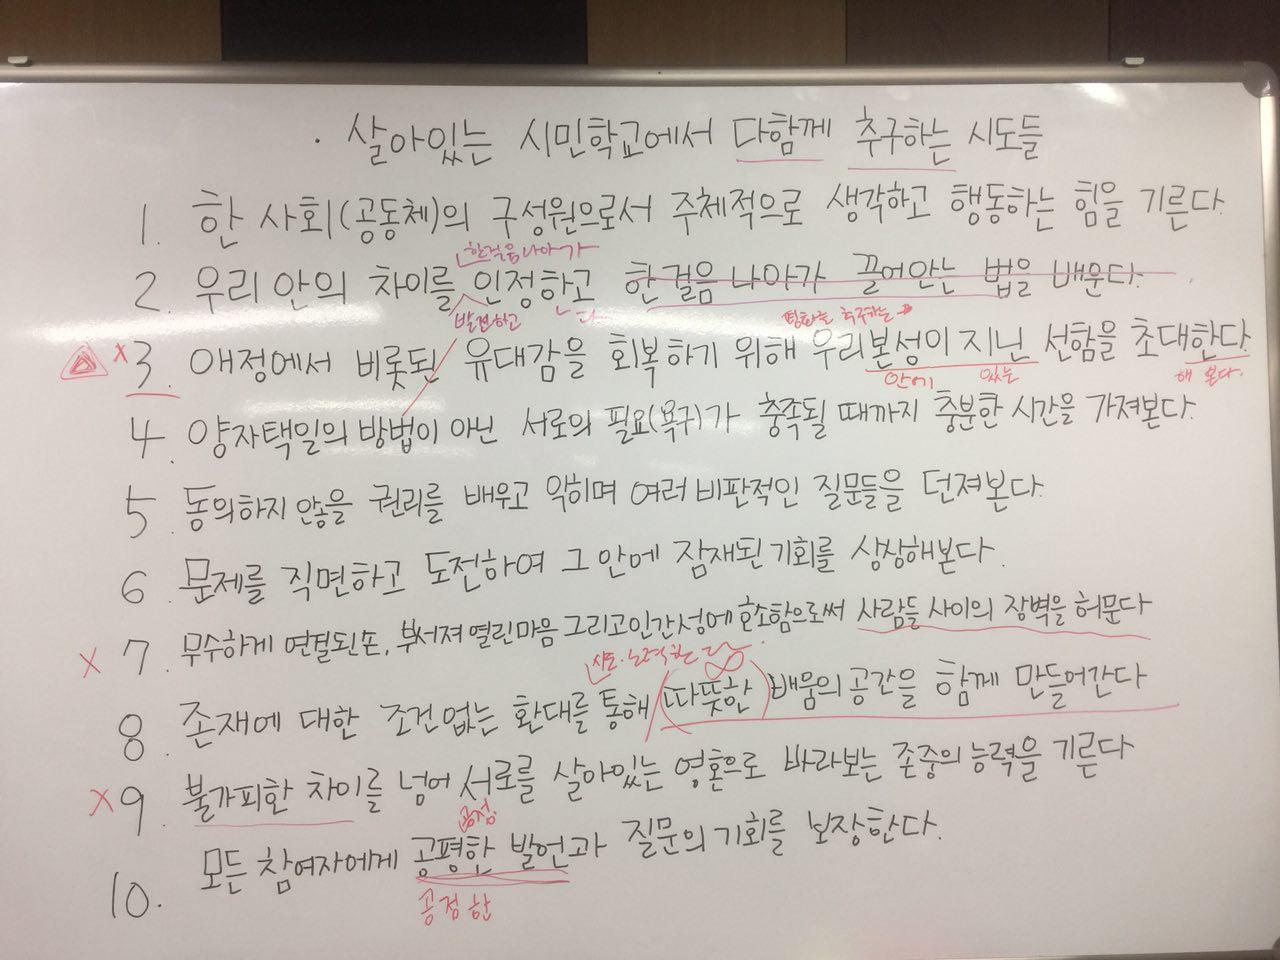 · 살아있는 시민학교에서 다함께 추구하는 시도들
1. 한 사회(공동체)의 구성원으로서 주체적으로 생각하고 행동하는 힘을 기른다.
한걸음 나아가
2. 우리 안의 차이를 인정하고 한걸음 나아가 끌어안는 법을 배운다.
발견하고 다
평화를 추구하는
x 3. 애정에서 비롯된 유대감을 회복하기 위해 우리본성이 지닌 선함을 초대한다
안에 있는 해 본다.
4. 양자택일의 방법이 아닌 서로의 필요(욕구)가 충족될 때까지 충분한 시간을 가져본다.
5. 동의하지 않을 권리를 배우고 익히며 여러 비판적인 질문들을 던져본다.
6. 문제를 직면하고 도전하여 그 안에 잠재된 기회를 상상해본다.
x 7. 무수하게 연결된 손, 부서져 열린마음 그리고 인간성에 호소함으로써 사람들 사이의 장벽을 허문다
시도·노력하는
8. 존재에 대한 조건없는 환대를 통해 (따뜻한) 배움의 공간을 함께 만들어간다
x 9. 불가피한 차이를 넘어 서로를 살아있는 영혼으로 바라보는 존중의 능력을 기른다
공정
10. 모든 참여자에게 공평한 발언과 질문의 기회를 보장한다.
공정한